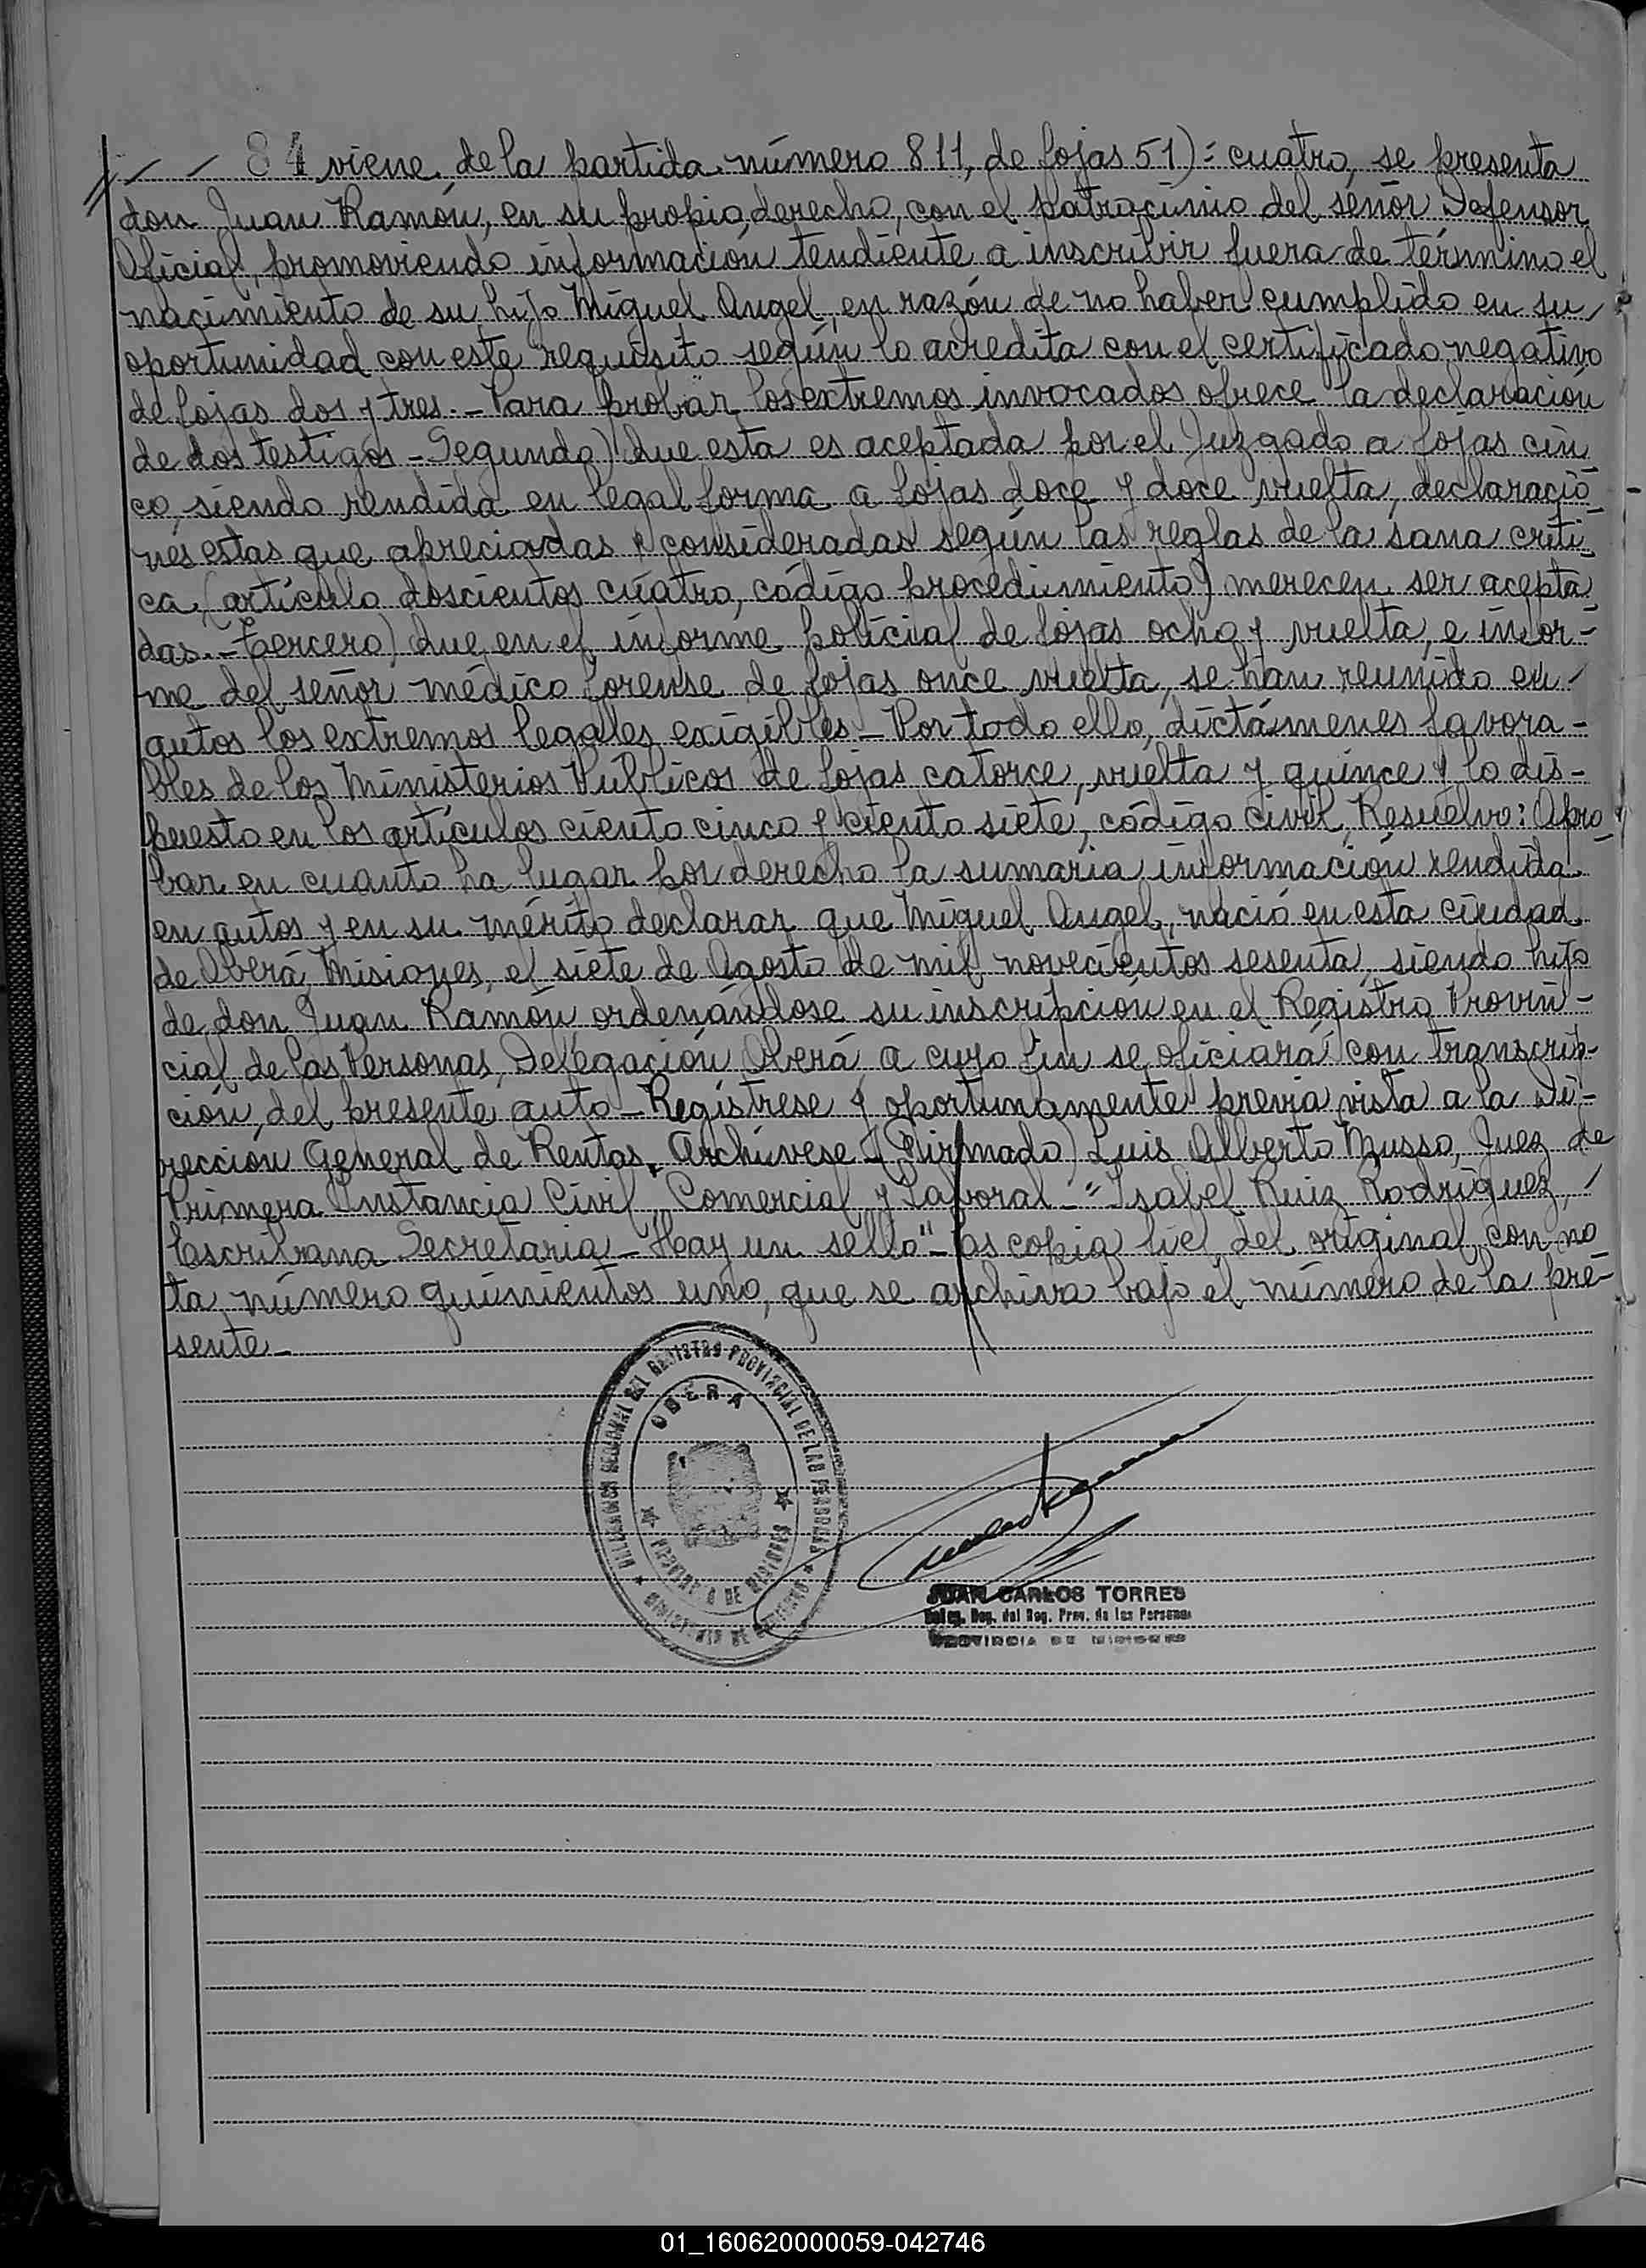 84 viene de la partida número 811, de fojas 51): cuatro, se presenta
don Juan Ramón, en su propio derecho, con el patrocinio del señor Defensor
Oficial, promoviendo información tendiente a inscribir fuera de término el
nacimiento de su hijo Miguel Angel, en razón de no haber cumplido en su
oportunidad con este requisito según lo acredita con el certificado negativo
de fojas dos y tres.- Para probar los extremos invocados ofrece la declaración
de dos testigos - Segundo) Que esta es aceptada por el Juzgado a fojas cin
co, siendo rendida en legal forma a fojas doce y doce vuelta, declaracio
nes estas que apreciadas y consideradas según las reglas de la sana criti
ca, (artículo doscientos cuatro, código procedimiento) merecen ser acepta
das.- Tercero) Que en el informe policial de fojas ocho y vuelta, e infor-
me del señor médico forense de fojas once vuelta, se han reunido en
autos los extremos legales exigibles - Por todo ello, dictámenes favora-
bles de los Ministerios Públicos de fojas catorce, vuelta y quince y lo dis-
puesto en los artículos ciento cinco y ciento siete, código civil, Resuelvo: Apro
bar en cuanto ha lugar por derecho la sumaria información rendida
en autos y en su mérito declarar que Miguel Angel, nació en esta ciudad
de Oberá, Misiones, el siete de Agosto de mil novecientos sesenta, siendo hijo
de don Juan Ramón ordenándose su inscripción en el Registro Provin-
cial de las Personas, Delegación Oberá a cuyo fin se oficiará con transcrip-
ción, del presente auto - Regístrese y oportunamente previa vista a la Di-
rección General de Rentas, Archívese - (Firmado) Luis Alberto Musso, Juez de
Primera Instancia Civil, Comercial y Laboral - "Isabel Ruiz Rodriguez,
Escribana Secretaria - Hay un sello" - Es copia fiel del original con no
ta número quinientos uno, que se archiva bajo el número de la pre-
sente -
DELEGACION REGIONAL DEL REGISTRO PROVINCIAL DE LAS PERSONAS
OBERA
PROVINCIA DE MISIONES
MINISTERIO DE GOBIERNO
JUAN CARLOS TORRES
Deleg. Reg. del Reg. Prov. de las Personas
PROVINCIA DE MISIONES
01_160620000059-042746